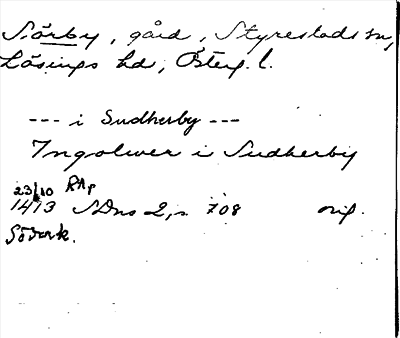 Sörby, gård, Styrestads sn,
Lösings hd, Österg. l.
--- i Sudherby ---
Ingolwer i Sudherby
23/10 RAp
1413 SDns 2, s. 708 orig.
Söderk.